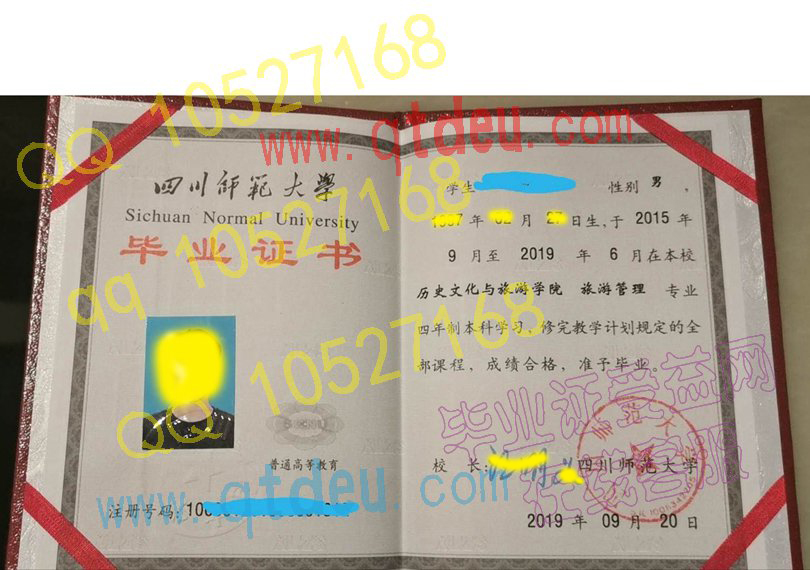 QQ 10527168
www.qtdeu.com
四川师範大学
Sichuan Normal University
毕业证书
qq 10527168
QQ 10527168
普通高等教育
注册号码:
学生 性别 男,
年 月 日生,于 2015 年
9 月至 2019 年 6 月在本校
历史文化与旅游学院 旅游管理 专业
四年制本科学习,修完教学计划规定的全
部课程,成绩合格,准予毕业。
毕业证受益网
在线客服
校 长: 四川师范大学
www.qtdeu.com
2019 年 09 月 20 日